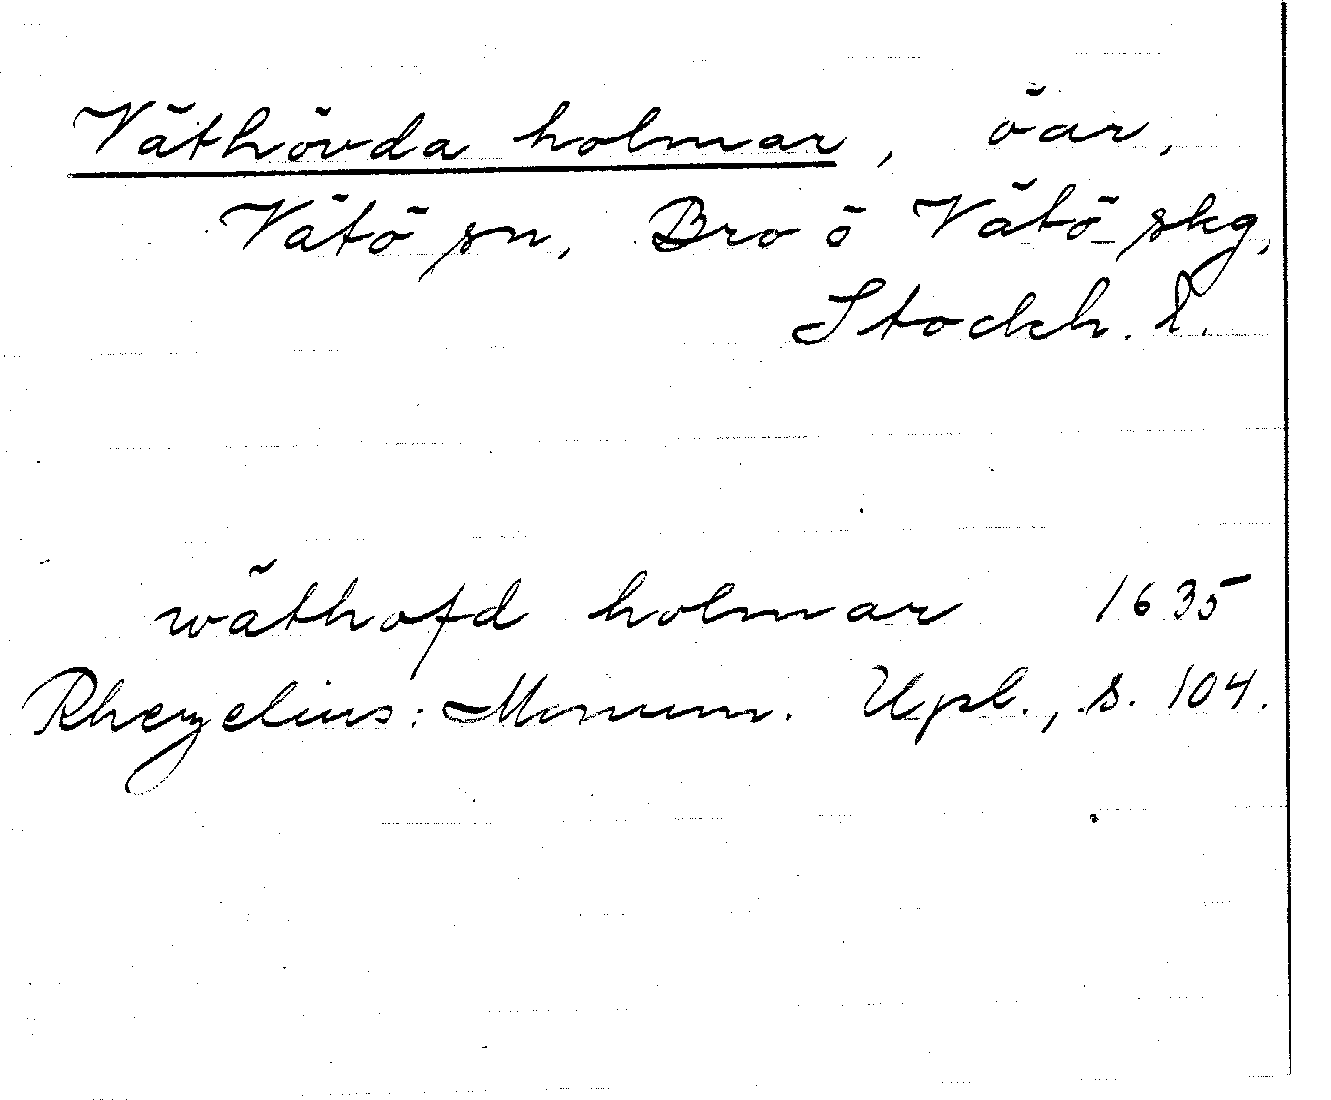 Väthövda holmar, öar,
Vätö sn, Bro o Vätö skg,
Stockh. l.
wäthofd holmar 1635
Rhezelius: Monum. Upl., s. 104.